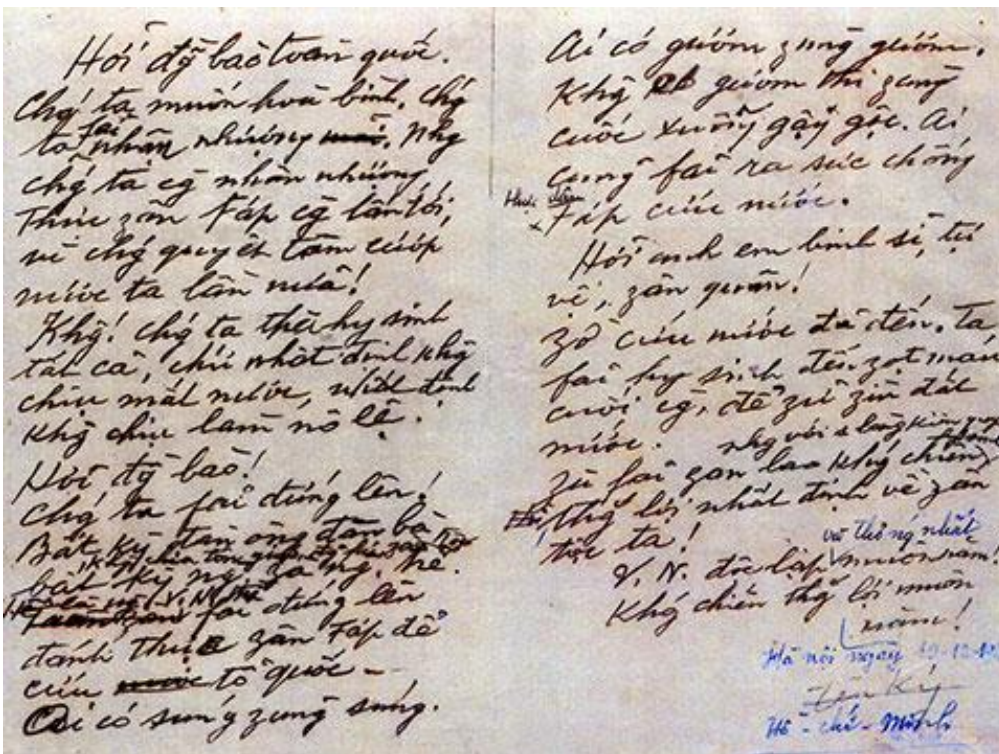 Hỡi đỹ bào toàn quốc.
Chg' ta muốn hoà bình, chg'
ta fải nhân nhượng. Nhg
chg' ta cg nhân nhượng,
Thực zân Fáp cg lấn tới,
vì chg quyết tâm cướp
nước ta lần nữa!
Khg! chg' ta thà hy sinh
tất cả, chứ nhất định khg
chịu mất nước, nhất định
khg chịu làm nô lệ.
Hỡi đỹ bào!
Chg' ta fải đứng lên!
Bất kỳ đàn ông đàn bà
bất kỳ ng. zà ng. trẻ.
fải đứng lên
đánh thực zân Fáp để
cứu tổ quốc -
Ai có súng zùng súng.
Ai có gươm zùng gươm,
Khg có gươm thì zùng
cuốc xuổng gậy gộc. Ai
cũng fải ra sức chống
thực zân
Fáp cứu nước.
Hỡi anh em binh sĩ, tự
vệ, zân quân!
Zờ cứu nước đã đến. Ta
fải hy sinh đến zọt máu
cuối cg, để zữ zìn đất
nước.
Zù fải zan lao khg' chiến,
nhg với 1 lòng kiên quyết
thg' lợi nhất định về zân
tộc ta!
V. N. độc lập và thống nhất muôn năm!
Khg' chiến thg' lợi muôn
năm!
Hà nội ngày 19-12-
Hồ - chí - Minh